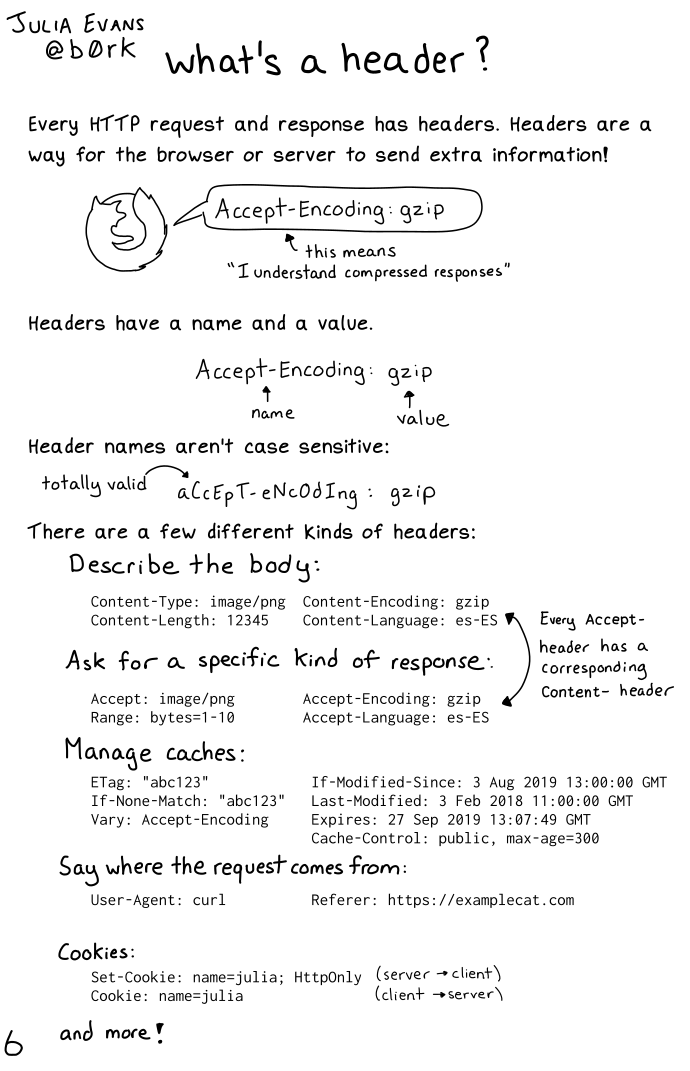 JULIA EVANS
@b0rk
what's a header?
Every HTTP request and response has headers. Headers are a
way for the browser or server to send extra information!
Accept-Encoding: gzip
this means
"I understand compressed responses"
Headers have a name and a value.
Accept-Encoding: gzip
name
value
Header names aren't case sensitive:
totally valid
aCcEpT-eNcOdIng : gzip
There are a few different kinds of headers:
Describe the body:
Content-Type: image/png Content-Encoding: gzip
Content-Length: 12345 Content-Language: es-ES
Every Accept-
header has a
corresponding
Content- header
Ask for a specific kind of response:
Accept: image/png Accept-Encoding: gzip
Range: bytes=1-10 Accept-Language: es-ES
Manage caches:
ETag: "abc123" If-Modified-Since: 3 Aug 2019 13:00:00 GMT
If-None-Match: "abc123" Last-Modified: 3 Feb 2018 11:00:00 GMT
Vary: Accept-Encoding Expires: 27 Sep 2019 13:07:49 GMT
Cache-Control: public, max-age=300
Say where the request comes from:
User-Agent: curl Referer: https://examplecat.com
Cookies:
Set-Cookie: name=julia; HttpOnly (server → client)
Cookie: name=julia (client → server)
and more!
6